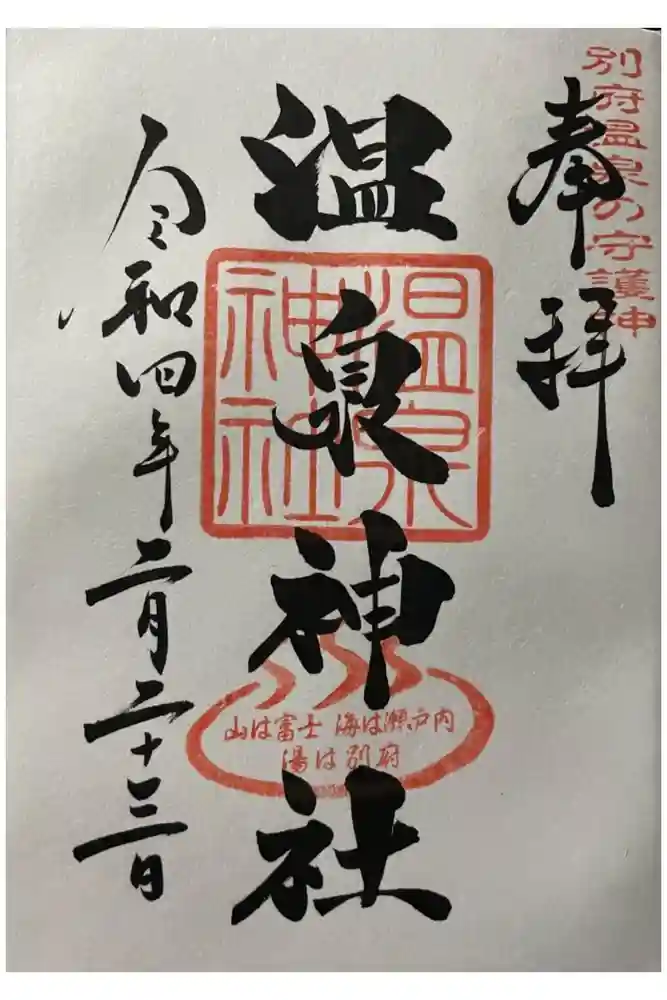 別府温泉の守護神
奉拝
温泉神社
温泉
神社
山は富士 海は瀬戸内
湯は別府
令和四年二月二十三日